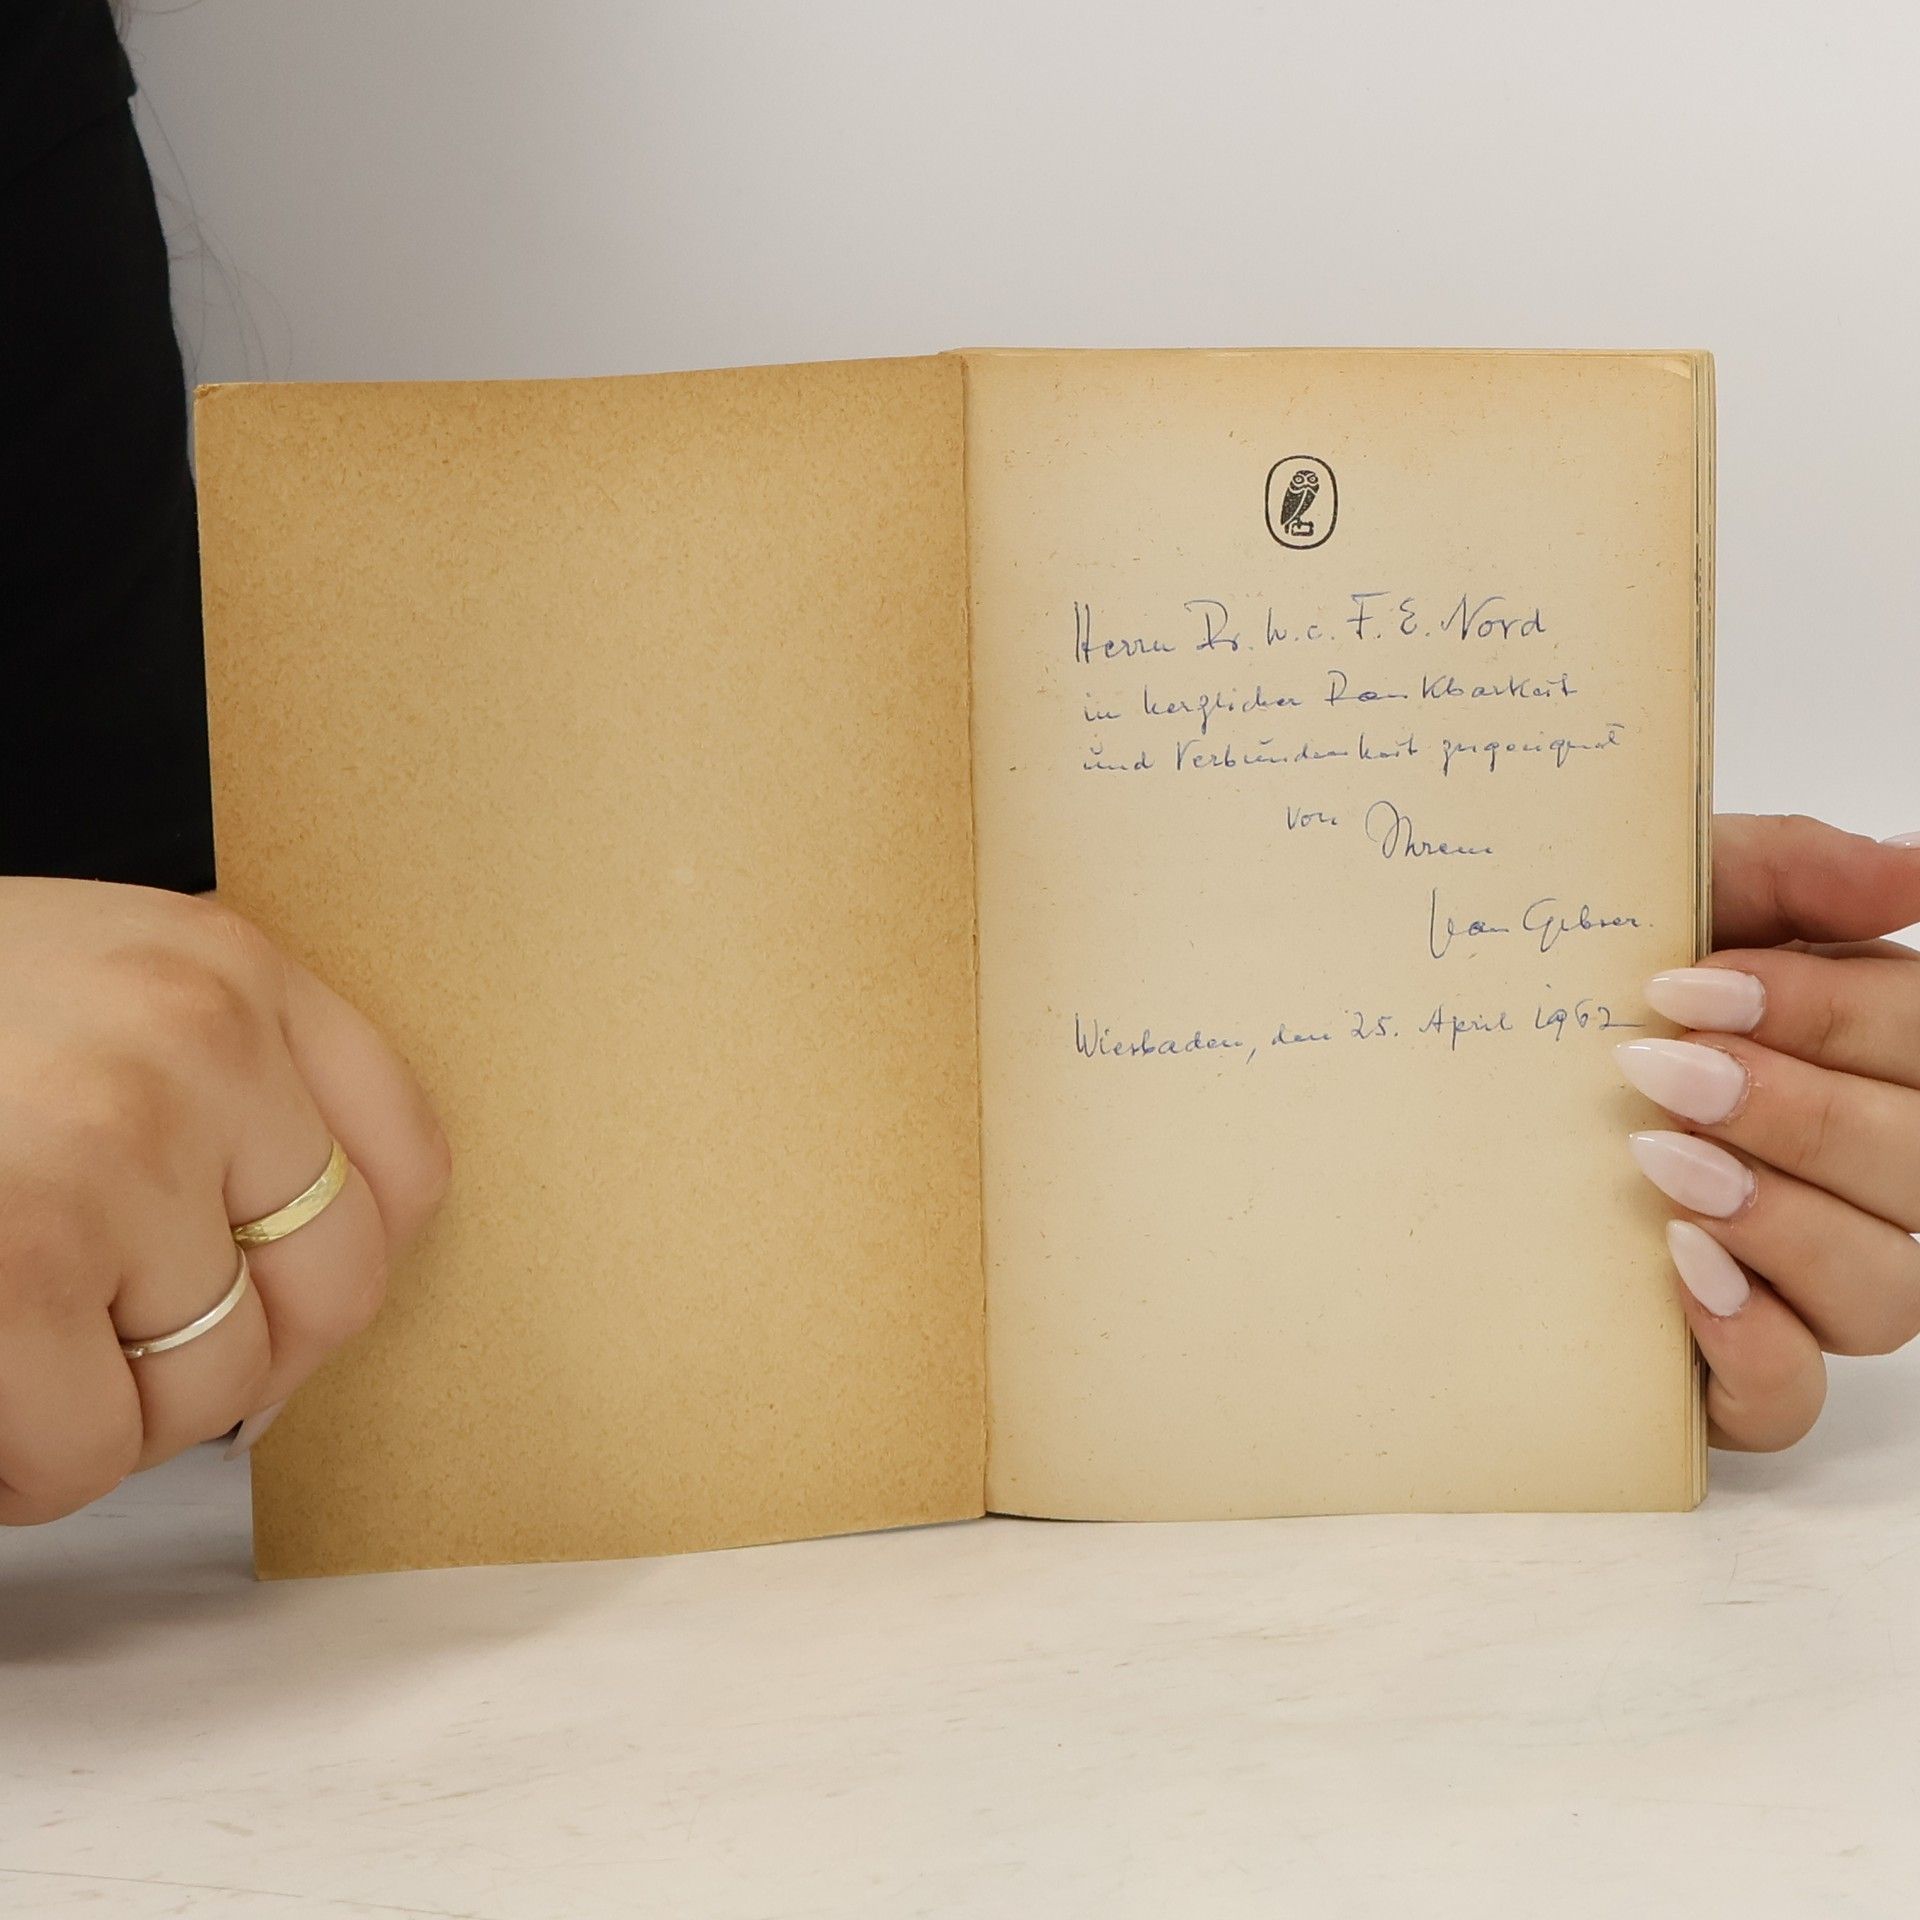 Herrn Dr. h. c. F. E. Nord
in herzlicher Dankbarkeit
und Verbundenheit zugeeignet
von Ihrem
Jean Gebser.
Wiesbaden, den 25. April 1962